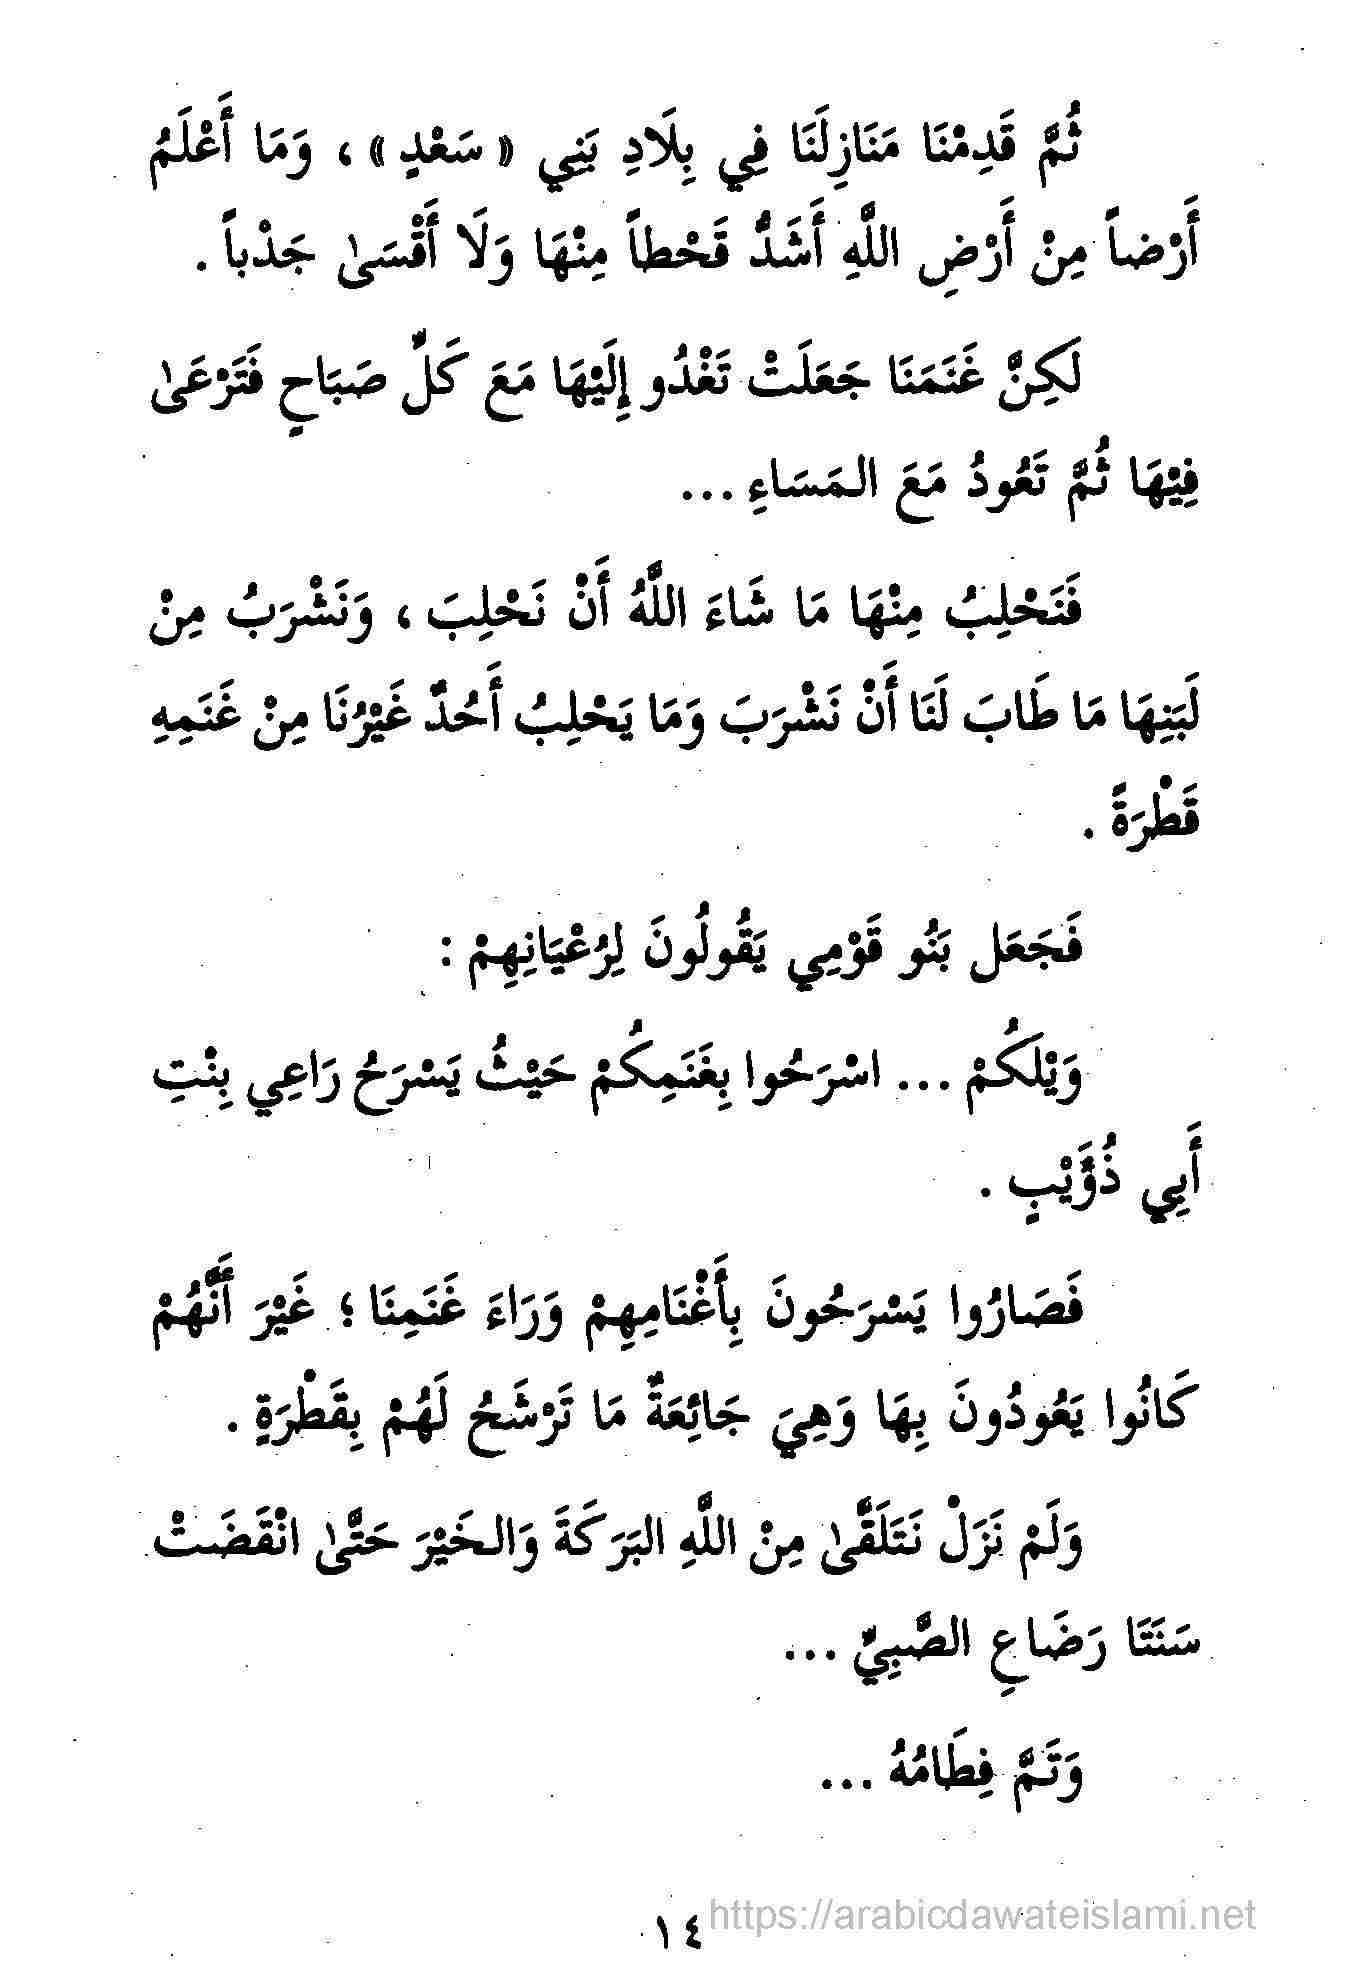 ثُمَّ قَدِمْنَا مَنَازِلَنَا فِي بِلَادِ بَنِي « سَعْدٍ » ، وَمَا أَعْلَمُ
أَرْضاً مِنْ أَرْضِ اللَّهِ أَشَدَّ قَحْطاً مِنْهَا وَلَا أَقْسَىٰ جَدْباً .
لَكِنَّ غَنَمَنَا جَعَلَتْ تَغْدُو إِلَيْهَا مَعَ كَلِّ صَبَاحٍ فَتَرْعَىٰ
فِيْهَا ثُمَّ تَعُودُ مَعَ الـمَسَاءِ ...
فَنَحْلِبُ مِنْهَا مَا شَاءَ اللَّهُ أَنْ نَحْلِبَ ، وَنَشْرَبُ مِنْ
لَبَنِهَا مَا طَابَ لَنَا أَنْ نَشْرَبَ وَمَا يَحْلِبُ أَحُدٌ غَيْرُنَا مِنْ غَنَمِهِ
قَطْرَةً .
فَجَعَل بَنُو قَوْمِي يَقُولُونَ لِرُعْيَانِهِمْ :
وَيْلَكُمْ ... اسْرَحُوا بِغَنَمِكُمْ حَيْثُ يَسْرَحُ رَاعِي بِنْتِ
أَبِي ذُؤَيْبٍ .
فَصَارُوا يَسْرَحُونَ بِأَغْنَامِهِمْ وَرَاءَ غَنَمِنَا ؛ غَيْرَ أَنَّهُمْ
كَانُوا يَعُودُونَ بِهَا وَهِيَ جَائِعَةٌ مَا تَرْشَحُ لَهُمْ بِقَطْرَةٍ .
وَلَمْ نَزَلْ نَتَلَقَّىٰ مِنْ اللَّهِ البَرَكَةَ وَالـخَيْرَ حَتَّىٰ انْقَضَتْ
سَنَتَا رَضَاعِ الصَّبِيِّ ...
وَتَمَّ فِطَامُهُ ...
١٤ https://arabicdawateislami.net